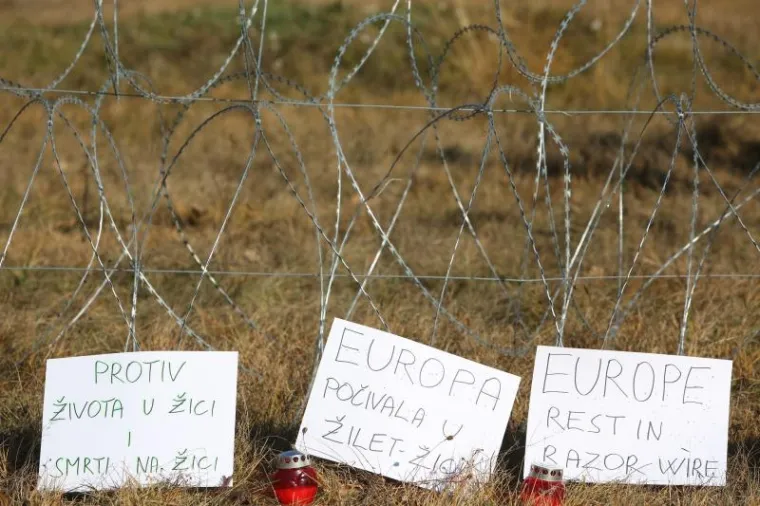 PROTIV
ŽIVOTA U ŽICI
I
SMRTI NA ŽICI
EUROPA
POČIVALA U
ŽILET-ŽICI
EUROPE
REST IN
RAZOR WIRE